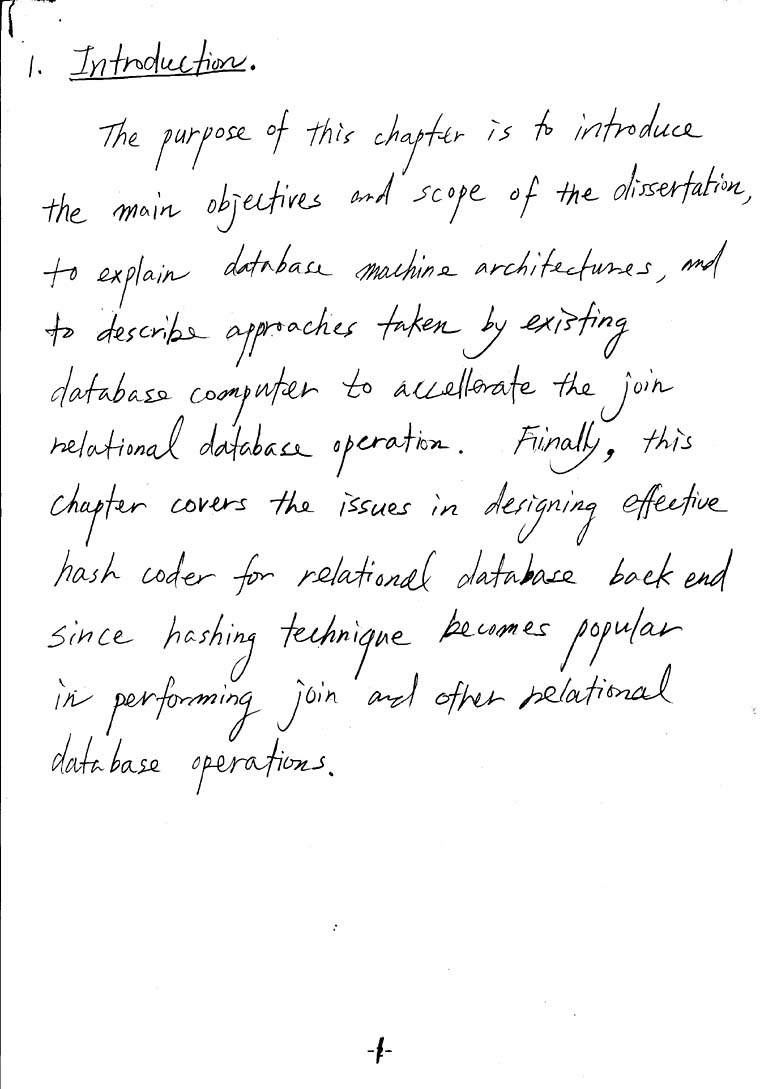 1. Introduction.
The purpose of this chapter is to introduce
the main objectives and scope of the dissertation,
to explain database machine architectures, and
to describe approaches taken by existing
database computer to accellerate the join
relational database operation. Finally, this
chapter covers the issues in designing effective
hash coder for relational database back end
since hashing technique becomes popular
in performing join and other relational
database operations.
-1-